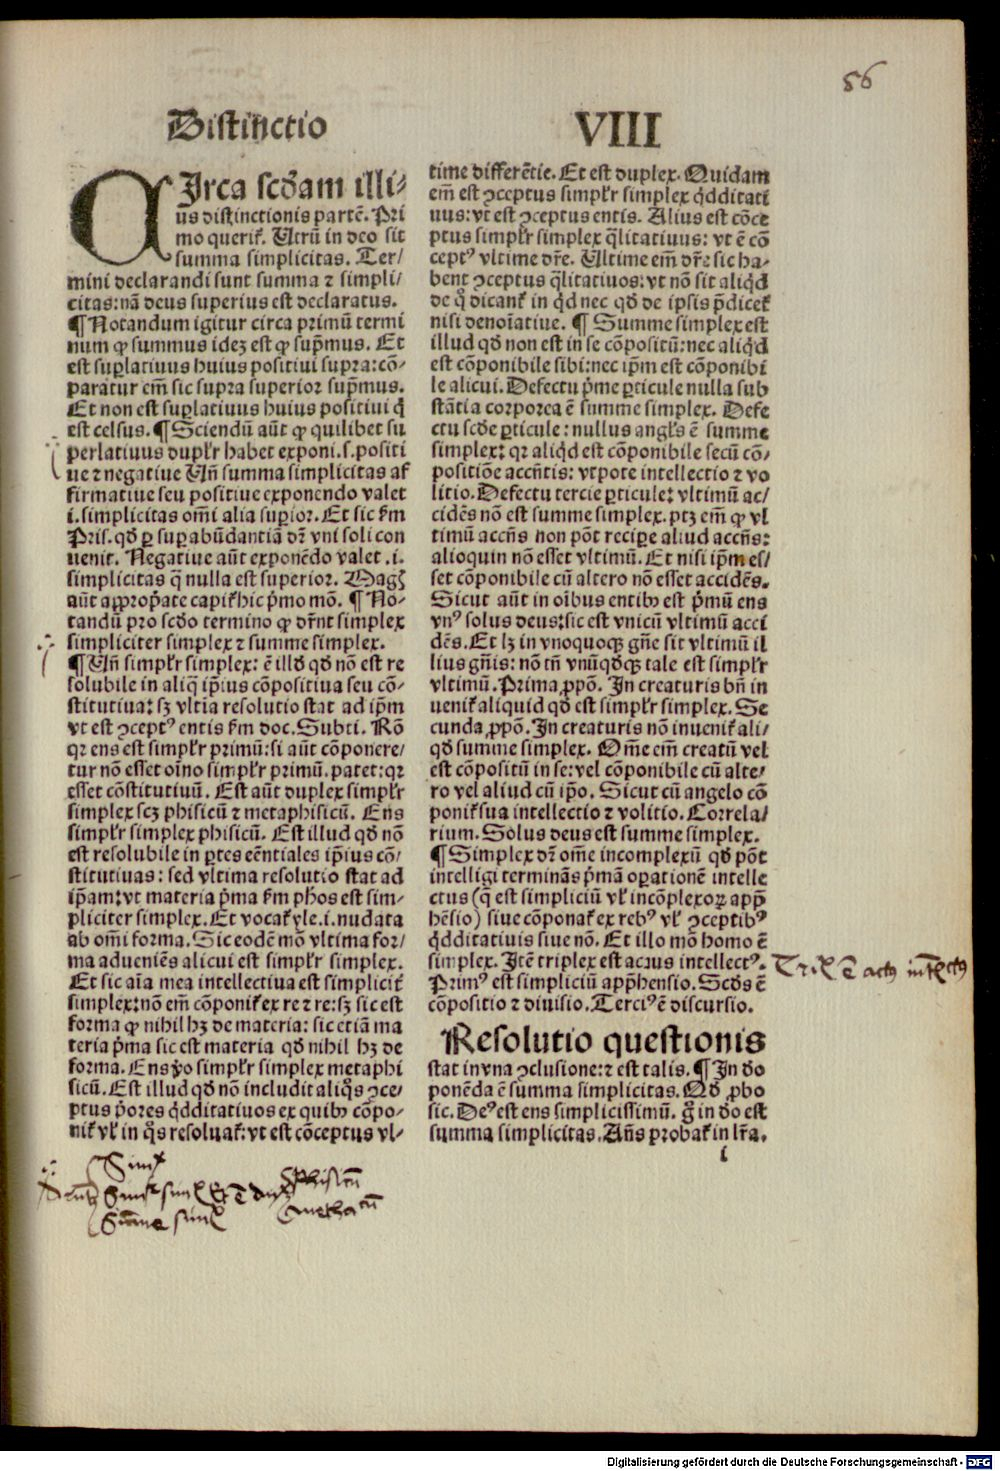 56
Distinctio VIII
CIrca scd̄am illi⸗
us distinctionis partē. Pri
mo querit᷑. Utrū in deo sit
summa simplicitas. Ter⸗
mini declarandi sunt summa ⁊ simpli⸗
citas: nā deus superius est declaratus.
¶ Notandum igitur circa primū termi
num ꝙ summus idez est ꝙ sup̄mus. Et
est suꝑlatiuus huius positiui supra: cō⸗
paratur em̄ sic supra superior sup̄mus.
Et non est suꝑlatiuus huius positiui q̄
est celsus. ¶ Sciendū aūt ꝙ quilibet su
perlatiuus duplr̄ habet exponi. s. positi
ue ⁊ negatiue Un̄ summa simplicitas af
firmatiue seu positiue exponendo valet
i. simplicitas om̄i alia suꝑior. Et sic s̄m
Pris. qd̄ ꝑ suꝑabūdantiā dr̄ vni soli con
uenit. Negatiue aūt exponēdo valet .i.
simplicitas q̄ nulla est superior. Magꝭ
aūt appropͥate capit᷑ hic pͥmo mō. ¶ No⸗
tandū pro scd̄o termino ꝙ dr̄nt simplex
simpliciter simplex ⁊ summe simplex.
¶ Un̄ simplr̄ simplex: ē illd̄ qd̄ nō est re
solubile in aliq̄ ip̄ius cōpositiua seu cō⸗
stitutiua: sꝫ vltīa resolutio stat ad ip̄m
vt est ꝯceptꝰ entis s̄m doc. Subti. Rō
qꝛ ens est simplr̄ primū: si aūt cōponere⸗
tur nō esset oīno simplr̄ primū. patet: qꝛ
esset cōstitutiuū. Est aūt duplex simplr̄
simplex scꝫ phisicū ⁊ metaphisicū. Ens
simplr̄ simplex phisicū. Est illud qd̄ nō
est resolubile in ꝑtes eēntiales ip̄ius cō⸗
stitutiuas: sed vltima resolutio stat ad
ip̄am: vt materia pͥma s̄m ph̄os est sim⸗
pliciter simplex. Et vocat᷑ yle .i. nudata
ab om̄i forma. Sic eodē mō vltima for⸗
ma adueniēs alicui est simplr̄ simplex.
Et sic aīa mea intellectiua est simplicit᷑
simplex: nō em̄ cōponit᷑ ex re ⁊ re: sꝫ sic est
forma ꝙ nihil hꝫ de materia: sic etiā ma
teria pͥma sic est materia qd̄ nihil hꝫ de
forma. Ens v̊o simplr̄ simplex metaphi
sicū. Est illud qd̄ nō includit aliq̄s ꝯce⸗
ptus pͥores q̄dditatiuos ex quibꝫ cōpo⸗
nit᷑ vl̄ in q̄s resoluat᷑: vt est cōceptus vl⸗
time differētie. Et est duplex. Quidam
em̄ est ꝯceptus simplr̄ simplex q̄dditati
uus: vt est ꝯceptus entis. Alius est cōce
ptus simplr̄ simplex q̄litatiuus: vt ē cō
ceptꝰ vltime dr̄e. Ultime em̄ dr̄e sic ha⸗
bent ꝯceptus q̄litatiuos: vt nō sit aliqͥd
de q̊ dicant᷑ in qͥd nec qd̄ de ipsis p̄dicet᷑
nisi denoīatiue. ¶ Summe simplex est
illud qd̄ non est in se cōpositū: nec aliqͥd
est cōponibile sibi: nec ip̄m est cōponibi
le alicui. Defectu pͥme ꝑticule nulla sub
stātia corporea ē summe simplex. Defe
ctu scd̄e ꝑticule: nullus angl̄s ē summe
simplex: qꝛ aliqͥd est cōponibile secū cō⸗
positiōe accn̄tis: vtpote intellectio ⁊ vo
litio. Defectu tercie ꝑticule: vltimū ac⸗
cidēs nō est summe simplex. ptꝫ em̄ ꝙ vl
timū accn̄s non pōt reciꝑe aliud accn̄s:
alioquin nō esset vltimū. Et nisi ip̄m es⸗
set cōponibile cū altero nō esset accidēs.
Sicut aūt in oībus entibꝫ est pͥmū ens
vnꝰ solus deus: sic est vnicū vltimū acci
dēs. Et lꝫ in vnoquoqꝫ gn̄e sit vltimū il
lius gn̄is: nō tn̄ vnūqd̄qꝫ tale est simplr̄
vltimū. Prima ꝓpō. In creaturis bn̄ in
uenit᷑ aliquid qd̄ est simplr̄ simplex. Se
cunda ꝓpō. In creaturis nō inuenit᷑ ali⸗
qd̄ summe simplex. Om̄e em̄ creatū vel
est cōpositū in se: vel cōponibile cū alte⸗
ro vel aliud cū ip̄o. Sicut cū angelo cō
ponit᷑ sua intellectio ⁊ volitio. Correla⸗
rium. Solus deus est summe simplex.
¶ Simplex dr̄ om̄e incomplexū qd̄ pōt
intelligi terminās pͥmā oꝑationē intelle
ctus (q̄ est simpliciū vl̄ incōplexoꝝ app̄
hēsio) siue cōponat᷑ ex rebꝰ vl̄ ꝯceptibꝰ
q̄dditatiuis siue nō. Et illo mō homo ē
simplex. Itē triplex est actus intellectꝰ.
Primꝰ est simpliciū app̄hensio. Scd̄s ē
cōpositio ⁊ diuisio. Terciꝰ ē discursio.
Resolutio questionis
stat in vna ꝯclusione: ⁊ est talis. ¶ In deo
ponēda ē summa simplicitas. Qd̄ ꝓbo
sic. Deꝰ est ens simplicissimū. g̊ in deo est
summa simplicitas. An̄s probat᷑ in lr̄a.
i
Simpͣ
Summe simpͣ
Phisicū
Metha